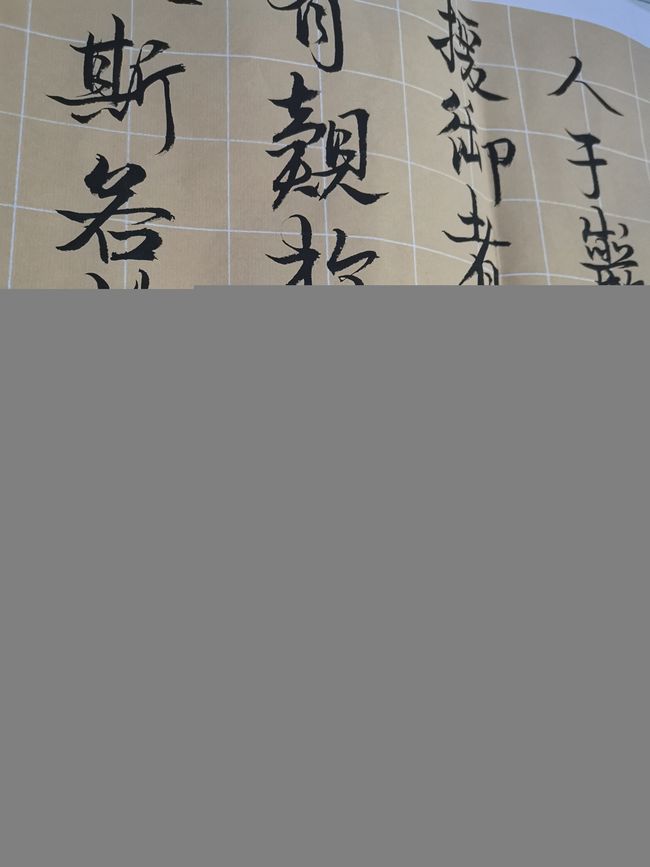 人于巖
援御者
有覿於
斯若